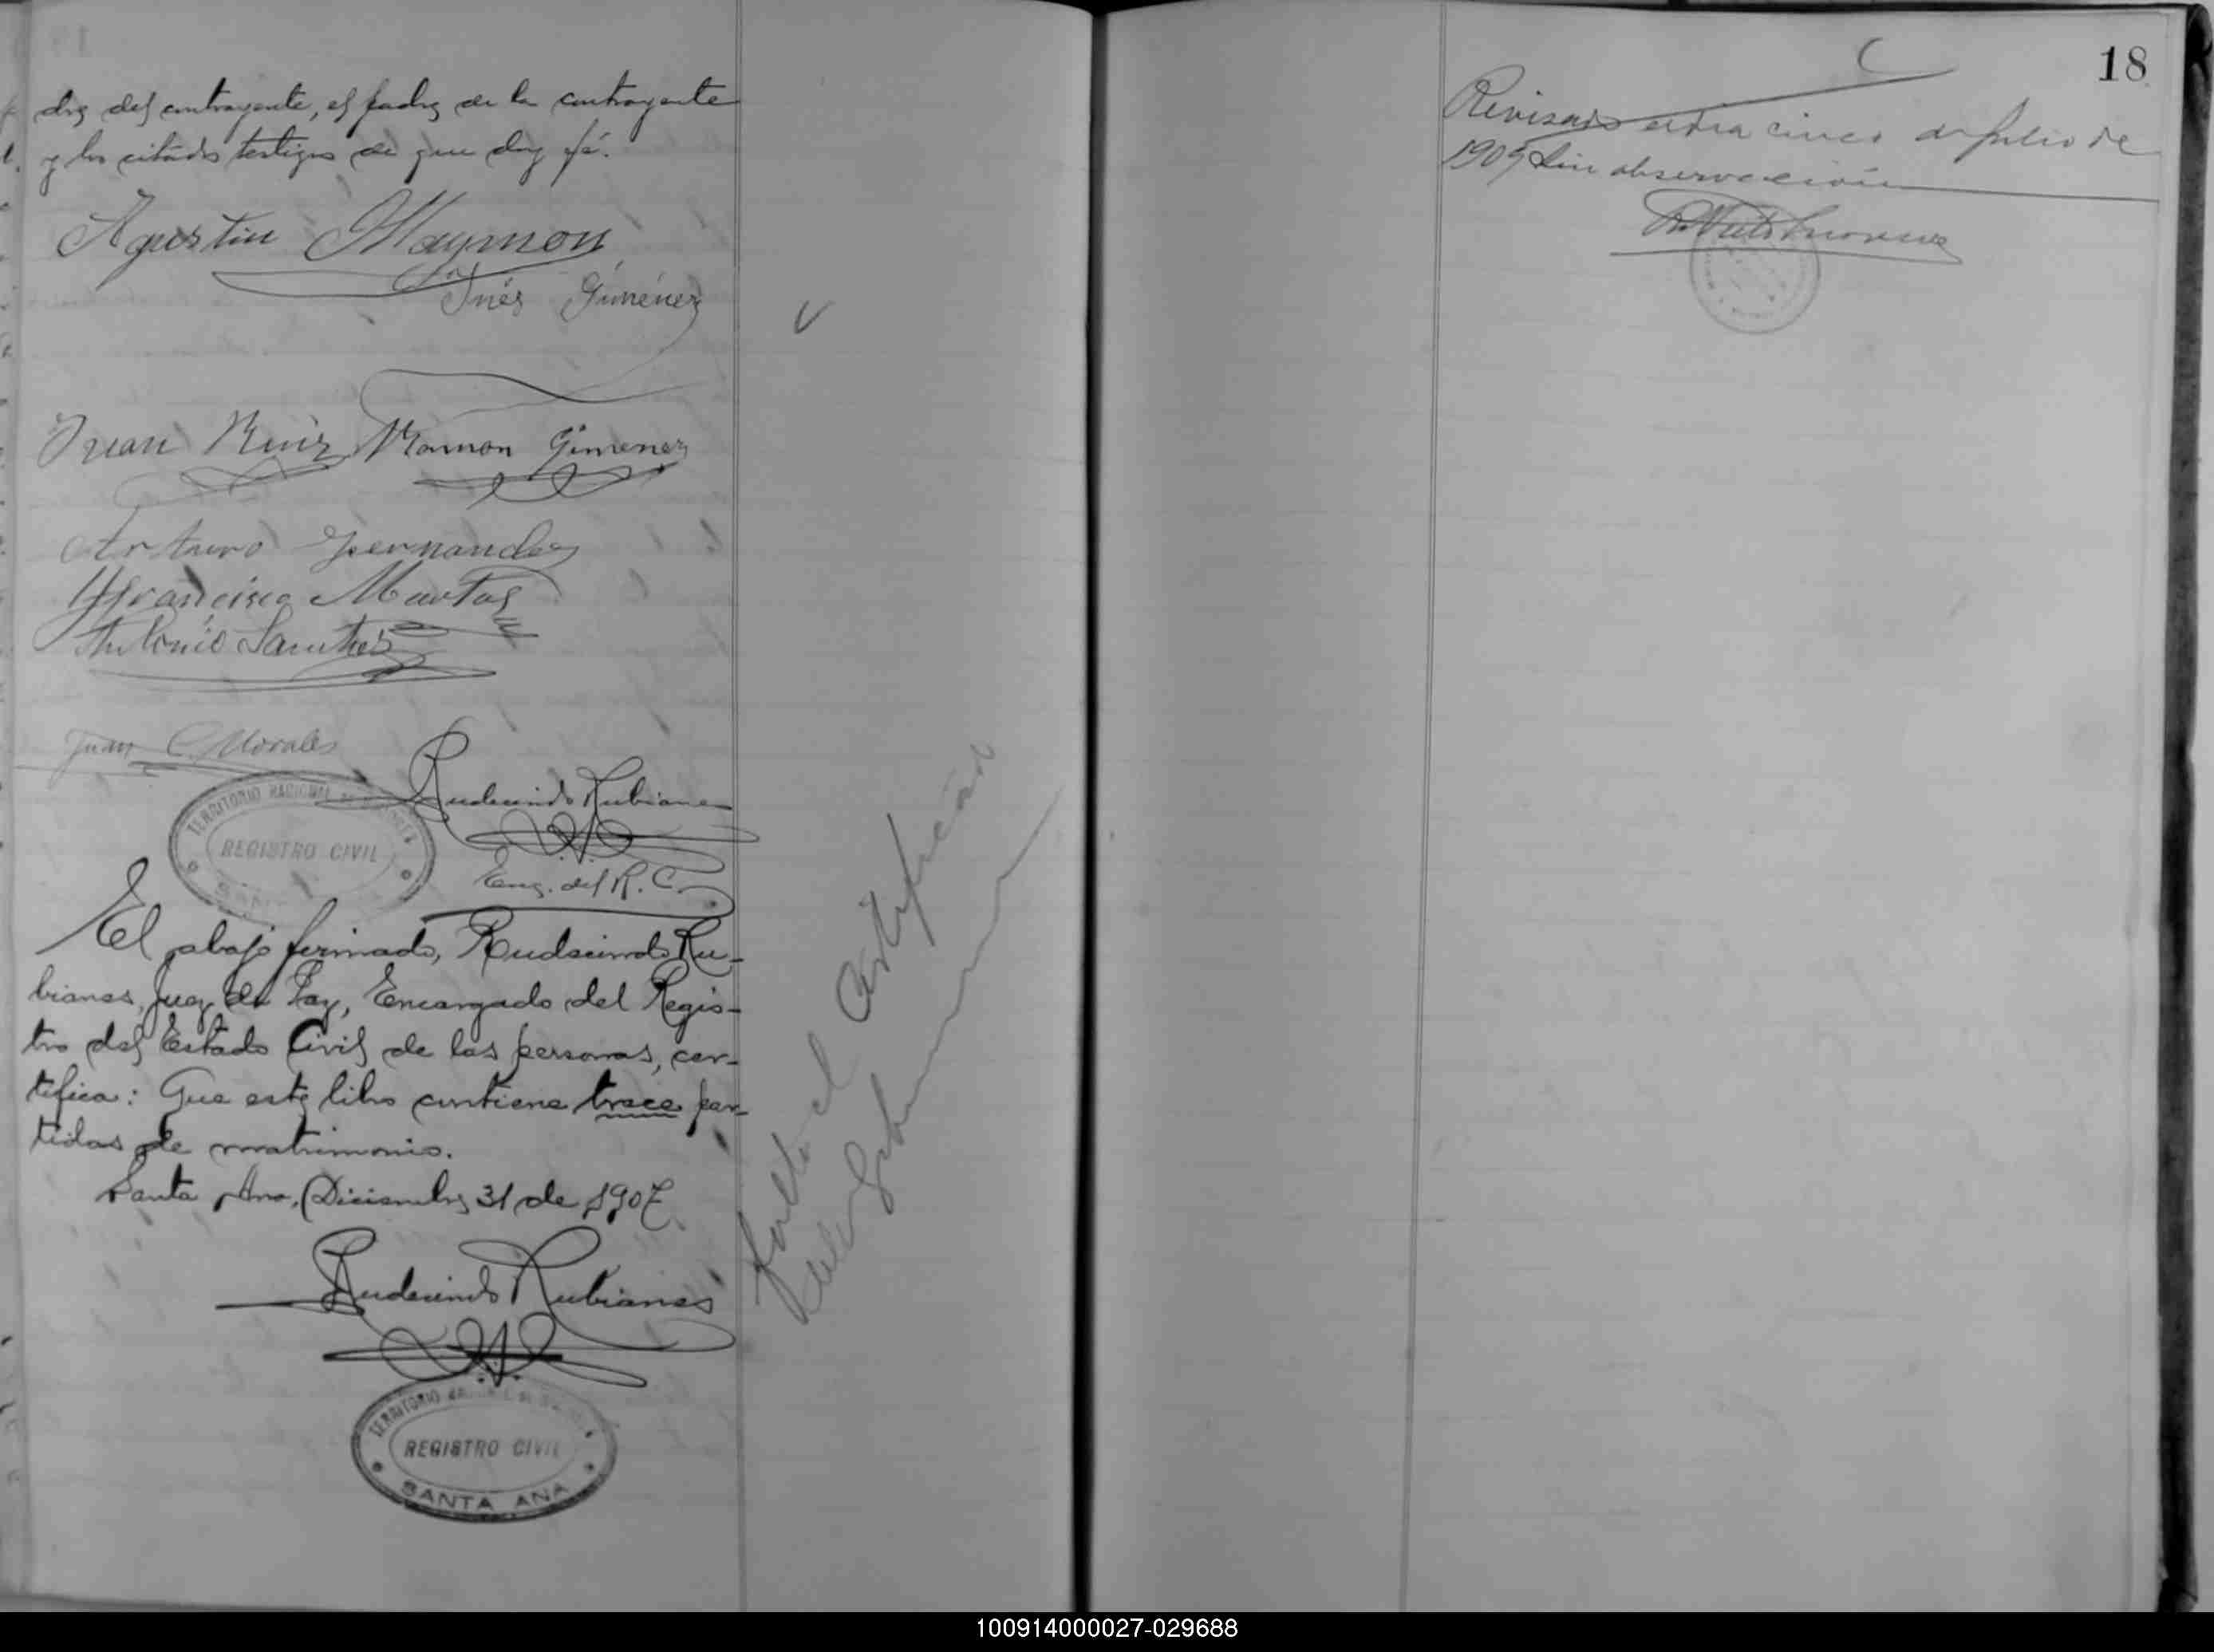 dre del contrayente, el padre de la contrayente
y los citados testigos de que doy fé.
Agustin Maymon
Inés Giménez
Juan Ruiz Ramon Gimenez
Arturo Fernandez
Francisco Martos
Antonio Sanchez
Juan C. Morales
Rudecindo Rubianes
Enc. del R. C.
TERRITORIO NACIONAL DE
REGISTRO CIVIL
El abajo firmado, Rudecindo Ru-
bianes, Juez de Paz, Encargado del Regis-
tro del Estado Civil de las personas, cer-
tifica: Que este libro contiene trece par-
tidas de matrimonio.
Santa Ana, Diciembre 31 de 1907.
Rudecindo Rubianes
TERRITORIO NACIONAL DE
REGISTRO CIVIL
SANTA ANA
falta el certificado
18
Revisado el dia cinco de Julio de
1909 sin observación
100914000027-029688